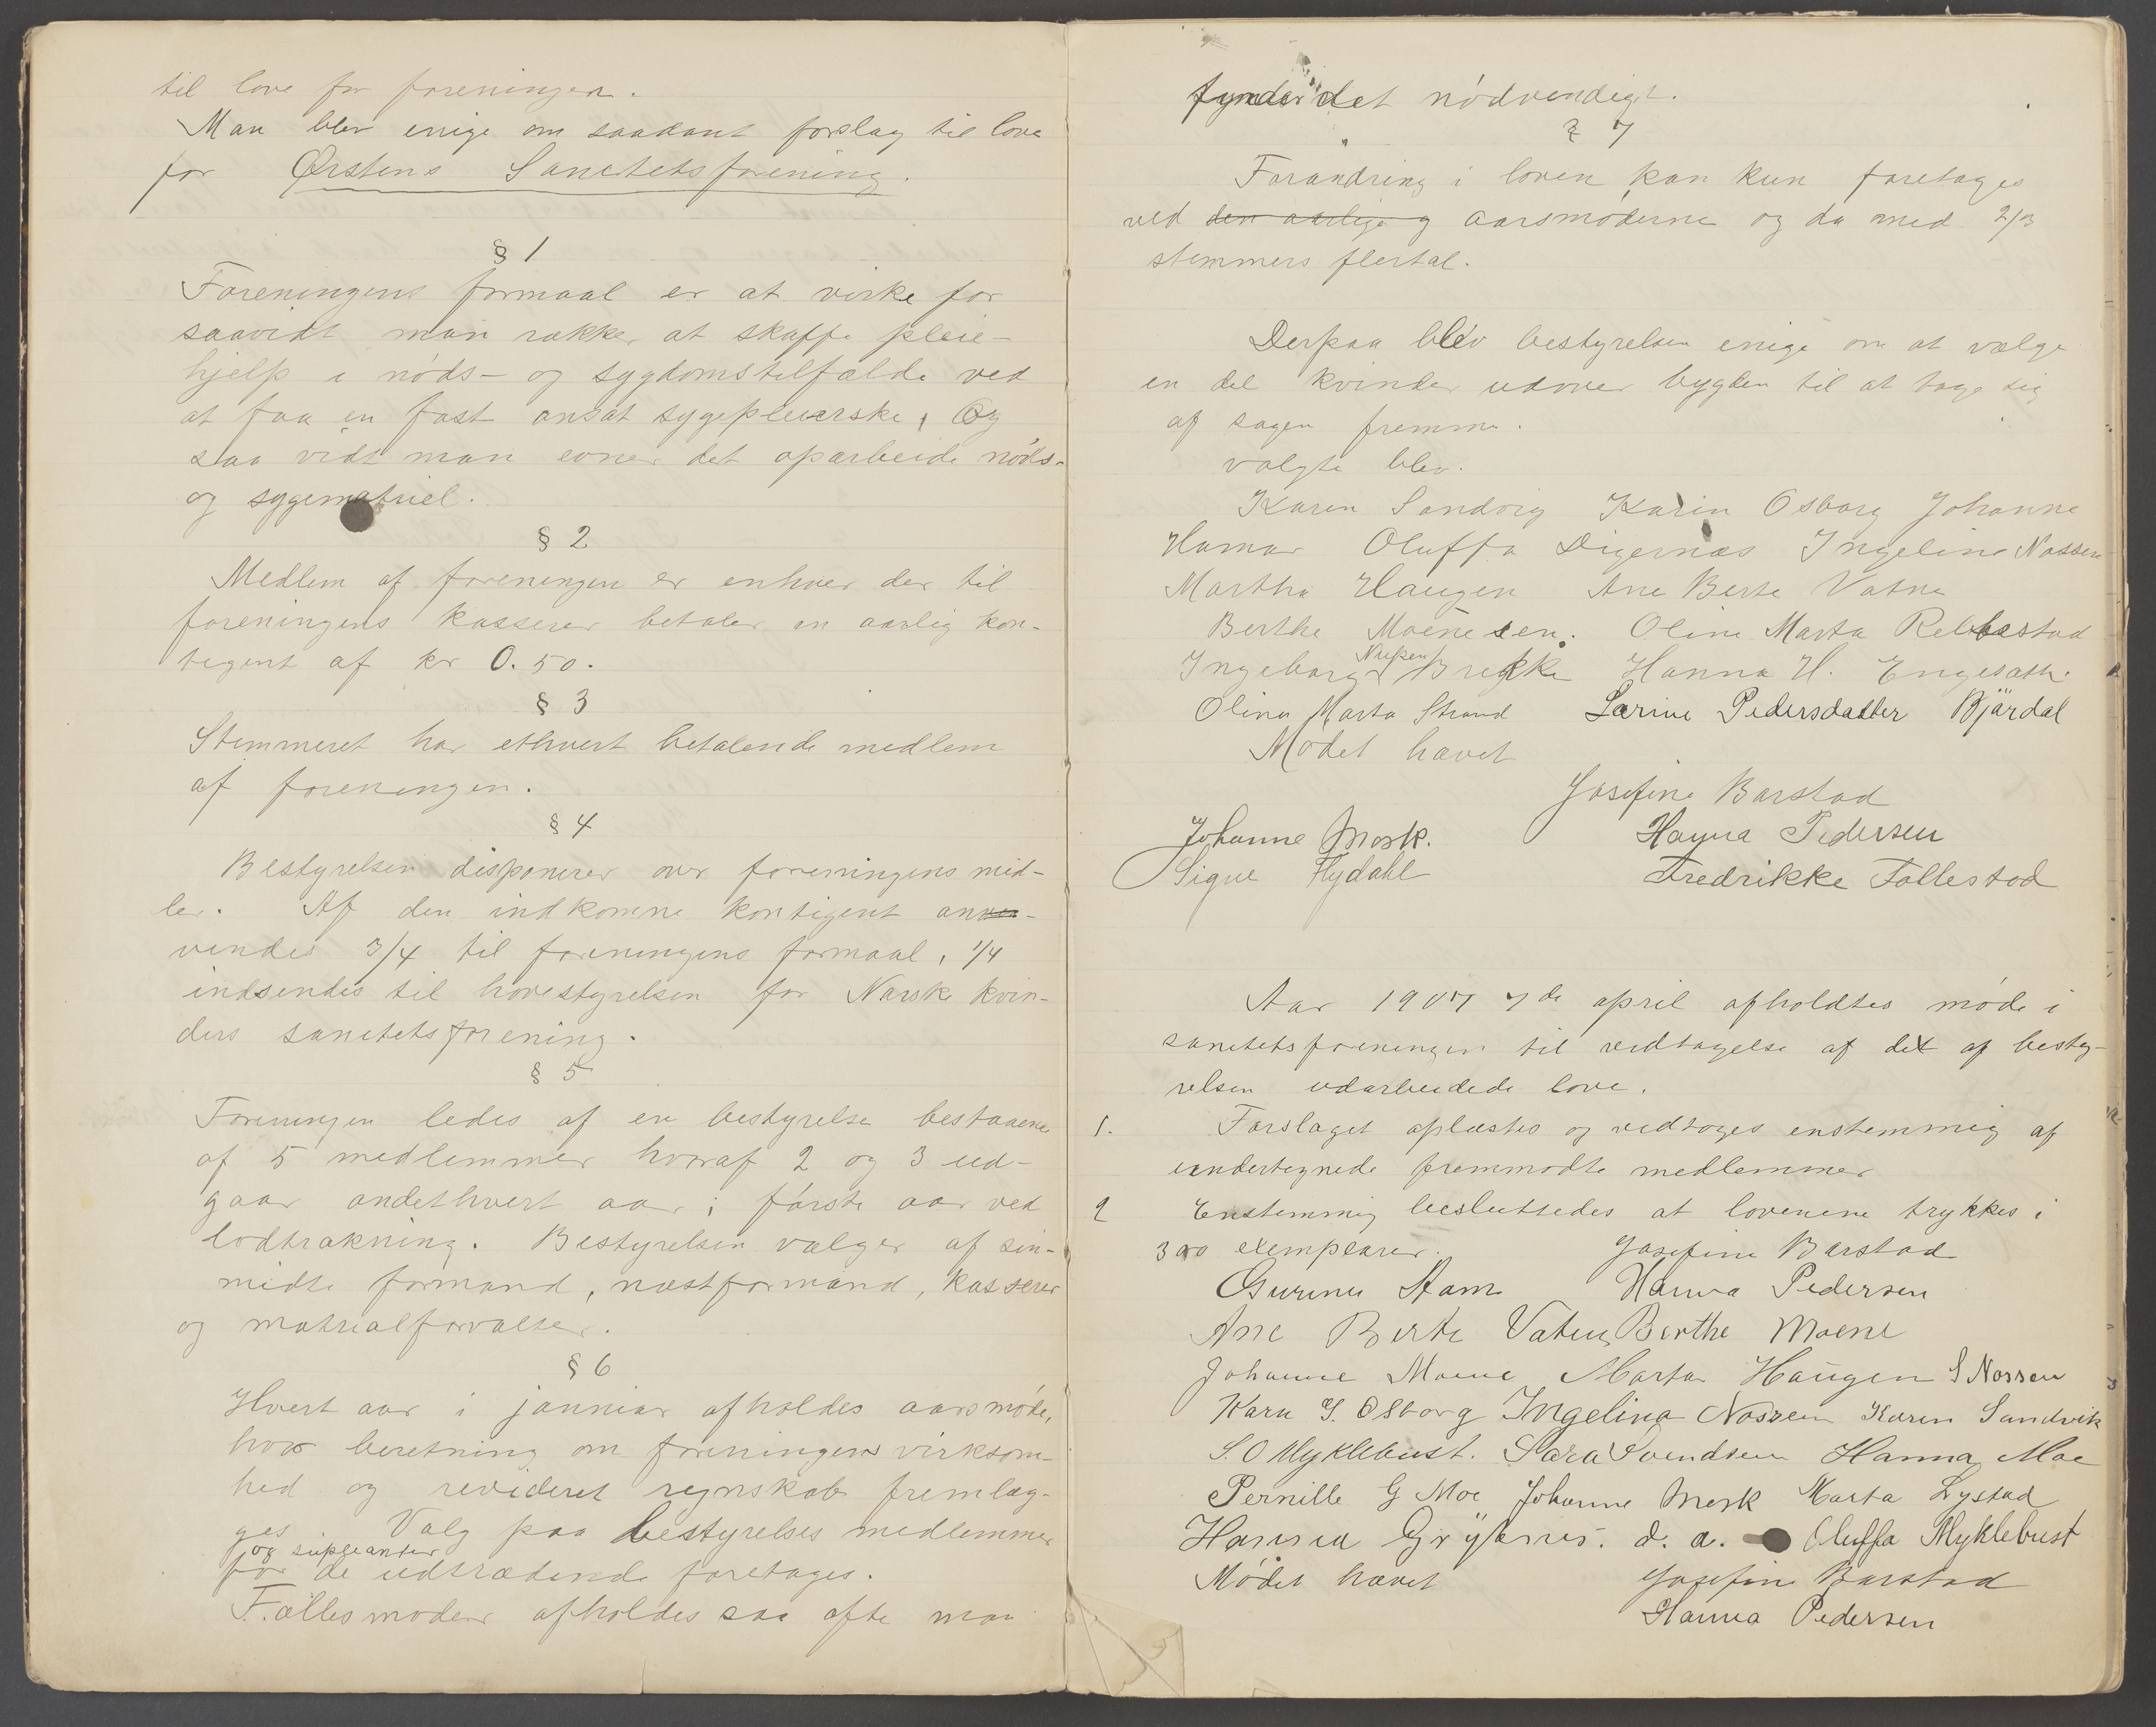 til love for foreningen.
Man blev enige om saadant forslag til love
for Ørstens Sanitetsforening.
§ 1
Foreningens formaal er at virke for
saavidt man rækker at skaffe pleie-
hjelp i nöds- og sygdomstilfælde ved
at faa en fast ansat sygepleierske, Og
saa vidt man evner det oparbeide nöds-
og sygematriel.
§ 2
Medlem af foreningen er enhver der til
foreningens kasserer betaler en aarlig kon-
tegent af kr 0.50.
§ 3
Stemmeret har ethvert betalende medlem
af foreningen.
§ 4
Bestyrelsen disponerer over foreningens mid-
ler. Af den indkomne kontigent an
vendes 3/4 til foreningens formaal, 1/4
indsendes til hovestyrelsen for Norske kvin-
ders sanitetsforening.
§ 5
Foreningen ledes af en bestyrelse bestaaende
af 5 medlemmer hvoraf 2 og 3 ud-
gaar andethvert aar; förste aar ved
lodtrækning. Bestyrelsen vælger af sin
midte formand, næstformand, kasserer
og matrialforvalter.
§ 6
Hvert aar i januar afholdes aarsmöde,
hvor beretning om foreningens virksom-
hed og revideret regnskab fremlæg-
ges. Valg paa bestyrelses medlemmer
og supleanter
for de udtrædende foretages.
Fællesmöder afholdes saa ofte man
fynder det nödvendigt.
§ 7
Forandring i loven kan kun foretages
ved den aarlige g aarsmöderne og da med 2/3
stemmers flertal.
Derpaa blev bestyrelsen enige om at vælge
en del kvinder udover bygden til at tage sig
af sagen fremme.
valgte blev.
Karen Sandvig Karin Osborg Johanne
Hamar Oluffa Digernæs Ingeline Nossen
Martha Haugen Ane Berte Vatne
Berthe Moene sen. Oline Marta Rebbestad
Ingeborg Brekke Hanna H. Engesæth.
Olina Marta Strand Larine Pedersdatter Bjärdal
Mödet hævet
Josefine Barstad
Johanne Mork. Hanna Pedersen
Signe Flydahl Fredrikke Follestad
Aar 1907 7de april afholdtes möde i
sanitetsforeningen til vedtagelse af det af besty-
relsen udarbeidede love.
1. Forslaget oplæstes og vedtoges enstemmig af
undertegnede fremmödte medlemmer
2 Enstemmig besluttedes at lovenene trykkes i
300 exemplarer. Josefine Barstad
Gurina Aam Hanna Pedersen
Ane Berte Vatne Berthe Moene
Johanne Moene Marta Haugen S Nossen
Karn J. Osborg Ingelina Nossen Karen Sandvik
S. O Myklebust. Sara Svendsen Hanna Moe
Pernille G Moe Johanne Mork Marta Lystad
Hanna d. a. Oluffa Myklebust
Mödet hævet Josefine Barstad
Hanna Pedersen